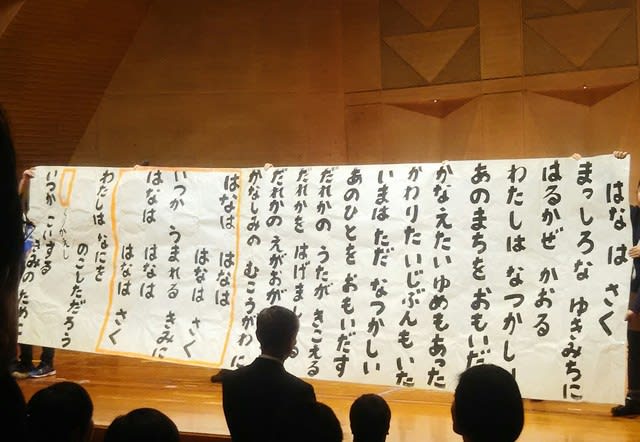 はな は さく
まっしろな ゆきみちに
はるかぜ かおる
わたしは なつかし
あのまちを おもいだ
かなえたいゆめもあった
かわりたいじぶんもいた
いまは ただ なつかしい
あのひとを おもいだす
だれかの うたが きこえる
だれかを はげまし る
だれかの えがおが
かなしみの むこうがわ に
はなは はなは
はなは さく
いつか うまれる きみに
はなは はなは
はなは さく
わたしは なにを
のこしただろう
くりかえし
いつか こいする きみのために